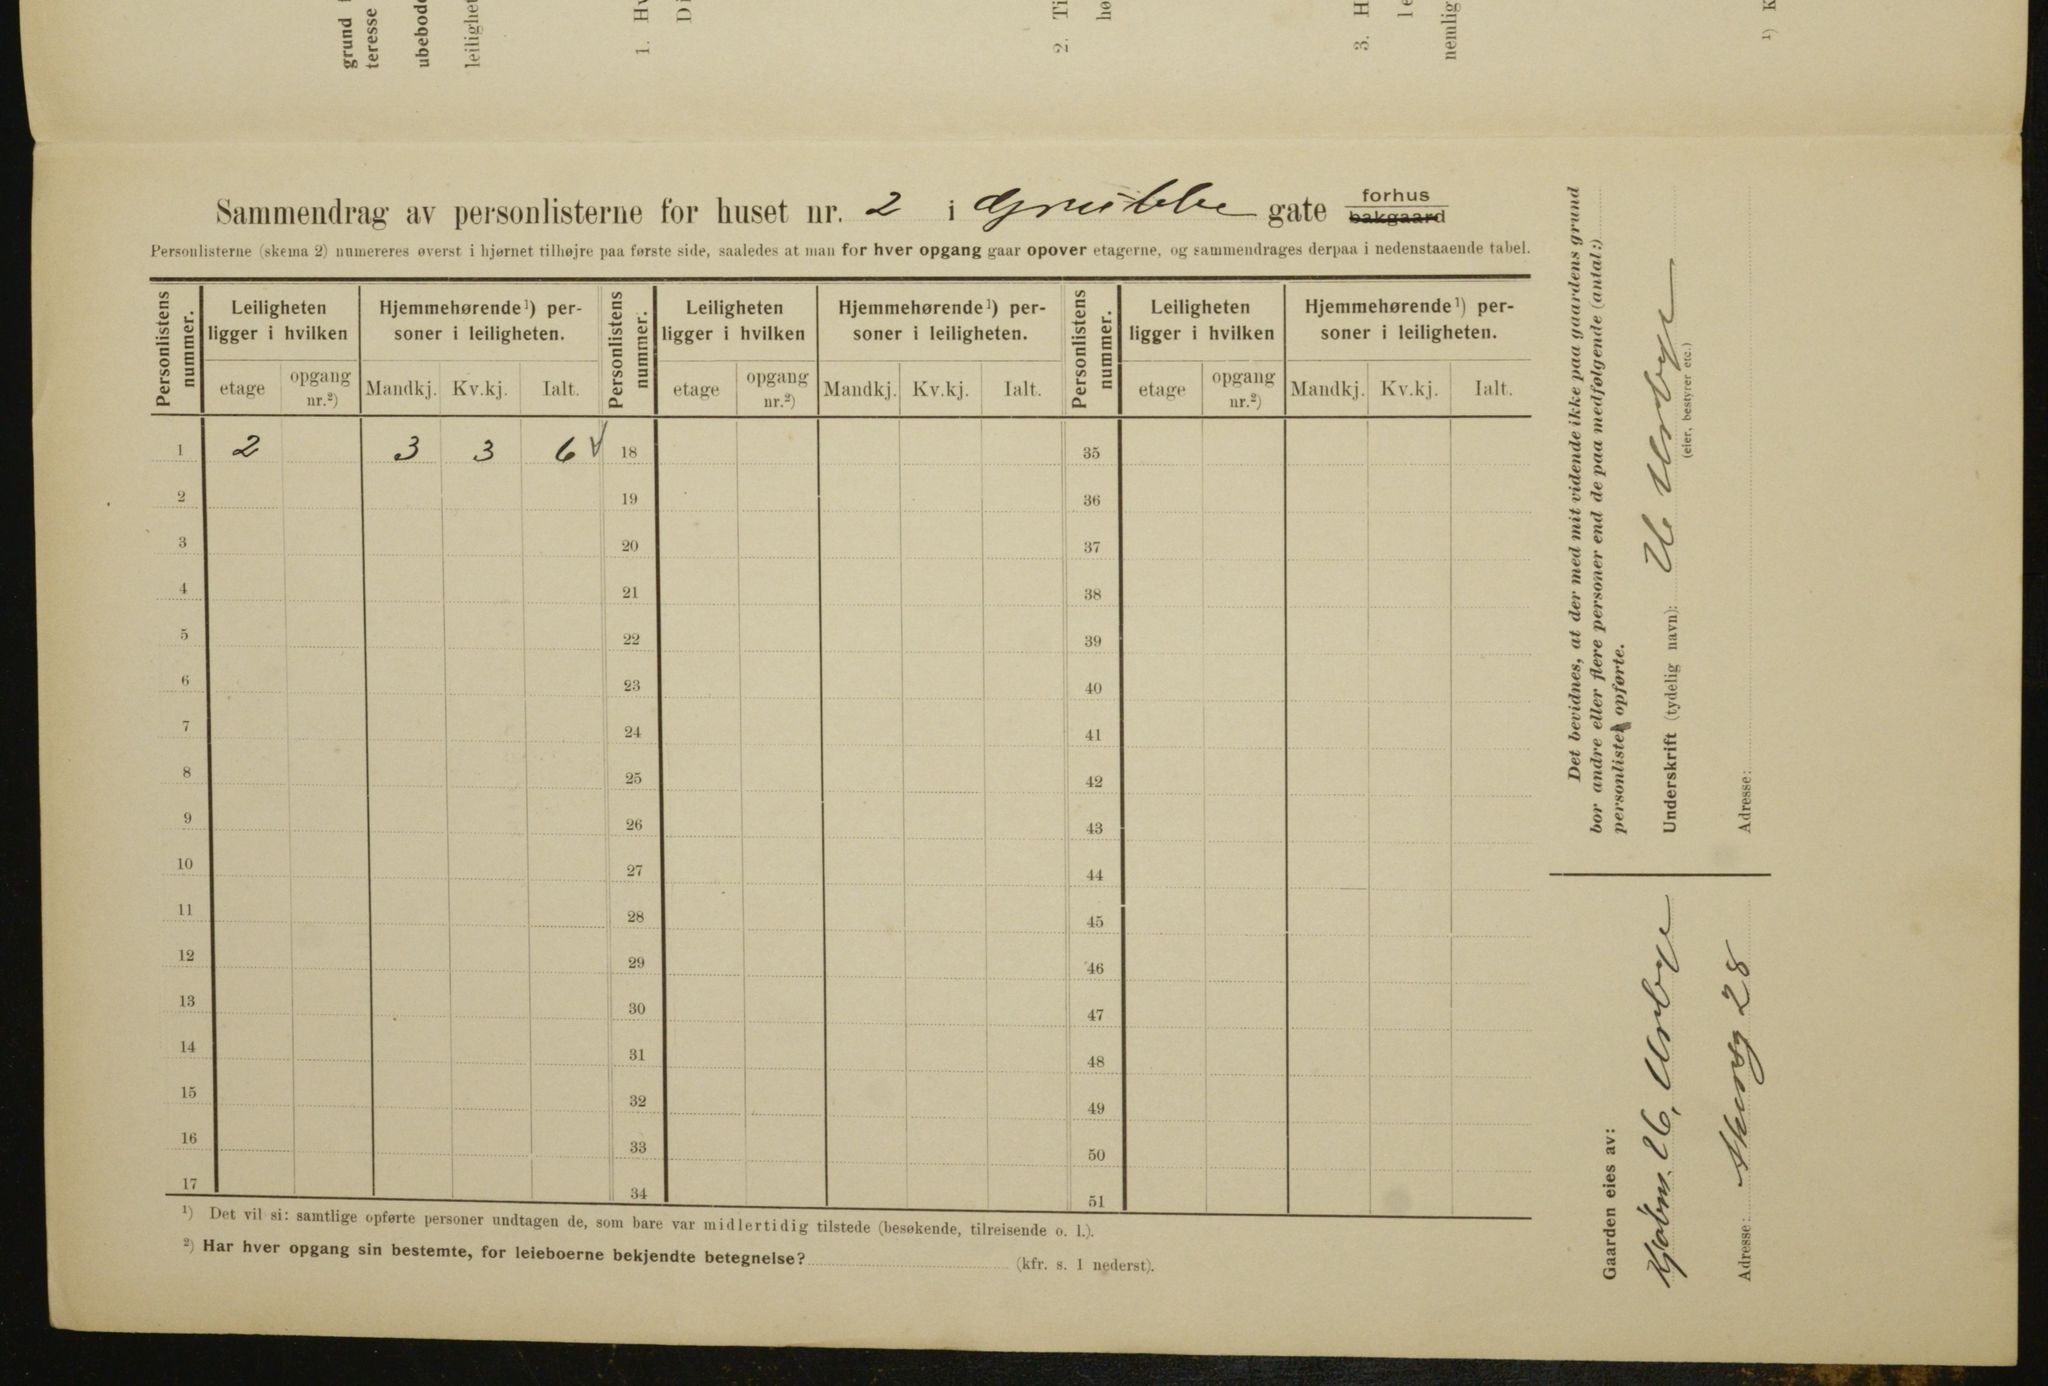 grund
teresse
ubebode
leilighet
1. Hv
Di
2. Ti
hø
3. H
le
nemlig
¹) K
Sammendrag av personlisterne for huset nr. 2 i Grubbe gate forhus
bakgaard
Personlisterne (skema 2) numereres øverst i hjørnet tilhøjre paa første side, saaledes at man for hver opgang gaar opover etagerne, og sammendrages derpaa i nedenstaaende tabel.
Personlistens nummer. Leiligheten ligger i hvilken Hjemmehørende¹) personer i leiligheten. Personlistens nummer. Leiligheten ligger i hvilken Hjemmehørende¹) personer i leiligheten. Personlistens nummer. Leiligheten ligger i hvilken Hjemmehørende¹) personer i leiligheten.
etage opgang nr.²) Mandkj. Kv.kj. Ialt. etage opgang nr.²) Mandkj. Kv.kj. Ialt. etage opgang nr.²) Mandkj. Kv.kj. Ialt.
1 2 3 3 6 18 35
2 19 36
3 20 37
4 21 38
5 22 39
6 23 40
7 24 41
8 25 42
9 26 43
10 27 44
11 28 45
12 29 46
13 30 47
14 31 48
15 32 49
16 33 50
17 34 51
¹) Det vil si: samtlige opførte personer undtagen de, som bare var midlertidig tilstede (besøkende, tilreisende o. l.).
²) Har hver opgang sin bestemte, for leieboerne bekjendte betegnelse? (kfr. s. 1 nederst).
Det bevidnes, at der med mit vidende ikke paa gaardens grund
bor andre eller flere personer end de paa medfølgende (antal:)
personlister opførte.
Underskrift (tydelig navn):
(eier, bestyrer etc.)
Adresse:
Gaarden eies av:
Kjøbm.
Adresse: 28